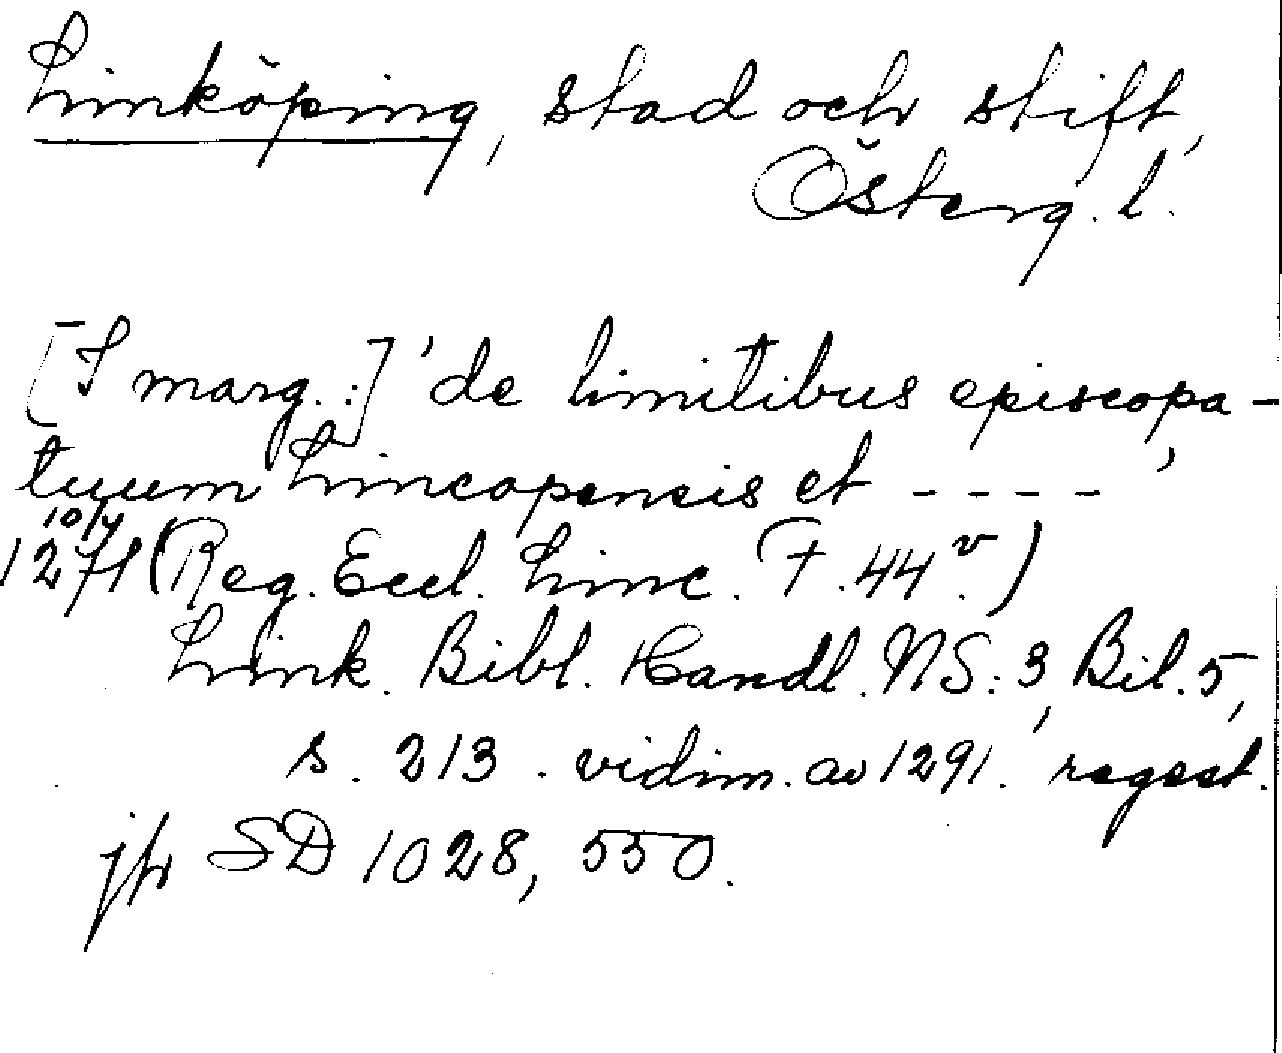 Linköping, stad och stift,
Österg. l.
[I marg.:] 'de limitibus episcopa-
tuum Lincopensis et - - - -'
10/4
1271 (Reg. Eccl. Linc. F. 44v.)
Link. Bibl. Handl. NS: 3, Bil. 5,
s. 213. vidim. av 1291. regest.
jfr SD 1028, 550.